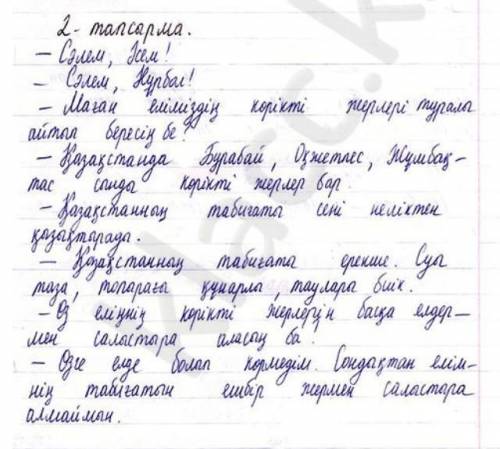 2- тапсырма.
– Сәлем, Әсем!
– Сәлем, Нұрбол!
– Маған еліміздің көрікті жерлері туралы
айтып бересің бе?
– Қазақстанда Бурабай, Оқжетпес, Жұмбақ-
тас сынды көрікті жерлер бар.
– Қазақстанның табиғаты сені неліктен
қызықтырады.
– Қазақстанның табиғаты ерекше. Суы
таза, топырағы құнарлы, таулары биік.
– Өз еліңнің көрікті жерлерін басқа елдер-
мен салыстыра аласың ба?
– Өзге елде болып көрмедім. Сондықтан елім-
нің табиғатын ешбір жермен салыстыра
алмаймын.